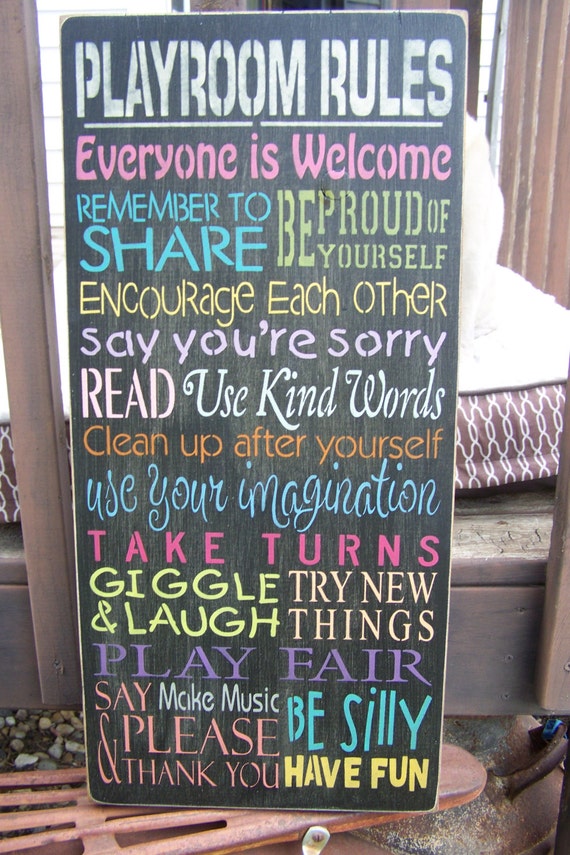 PLAYROOM RULES
Everyone is Welcome
REMEMBER TO SHARE
BE PROUD OF YOURSELF
ENCOURAGE EACH OTHER
say you're sorry
READ Use Kind Words
Clean up after yourself
use your imagination
TAKE TURNS
GIGGLE & LAUGH
TRY NEW THINGS
PLAY FAIR
SAY PLEASE & THANK YOU
Make Music
BE Silly
HAVE FUN